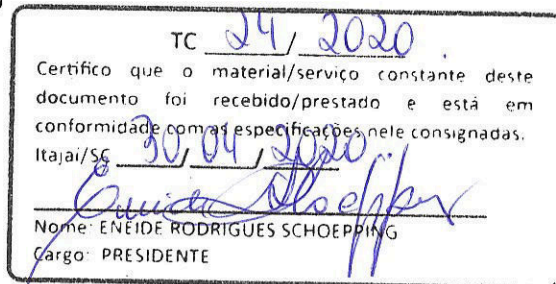 TC 24 / 2020.
Certifico que o material/serviço constante deste
documento foi recebido/prestado e está em
conformidade com as especificações nele consignadas.
Itajaí/SC 30 / 04 / 2020
Nome: ENEIDE RODRIGUES SCHOEPPING
Cargo: PRESIDENTE